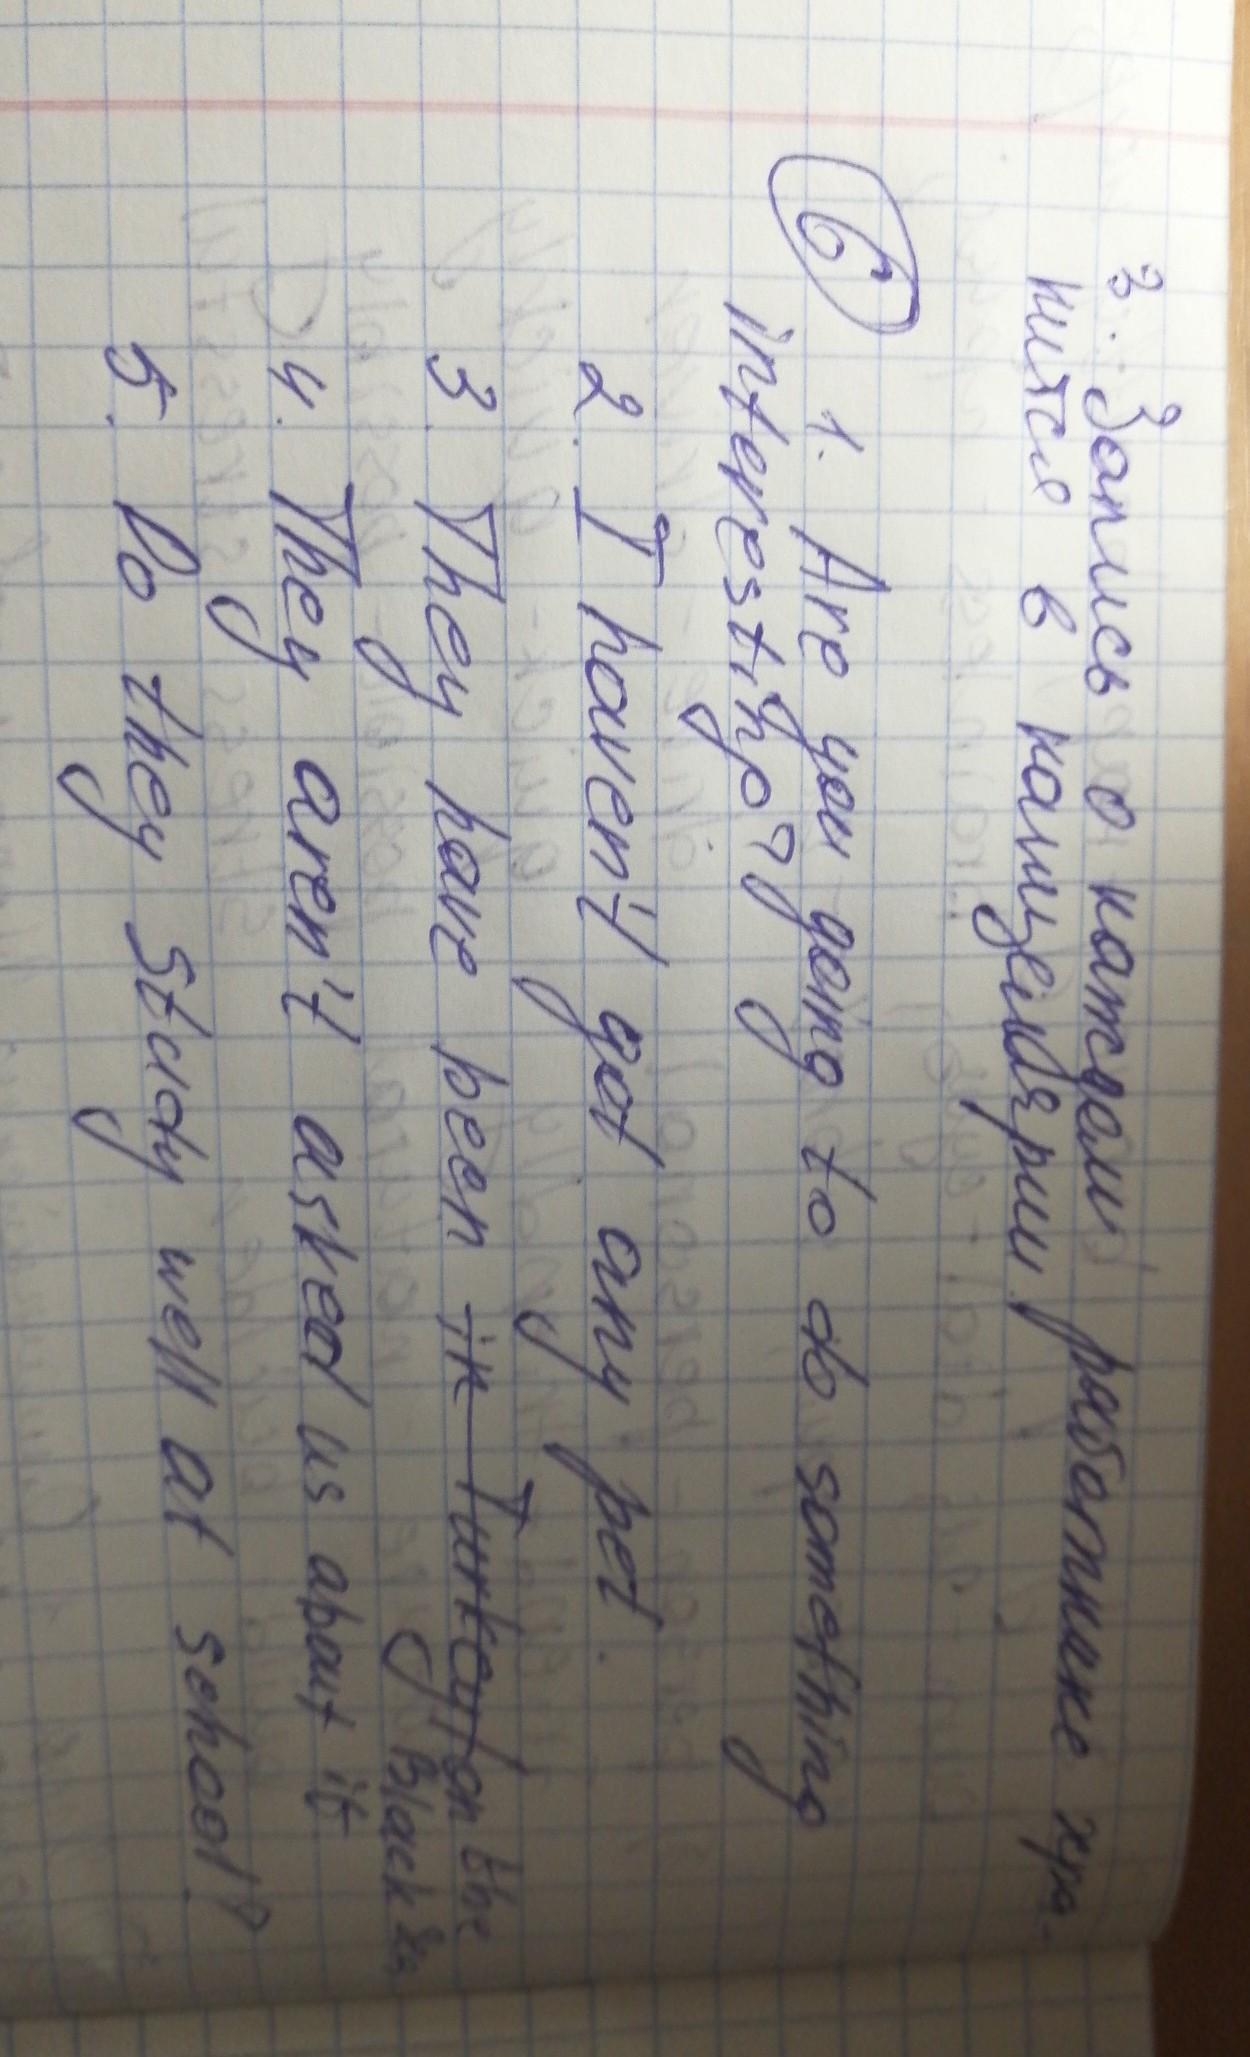 3. Запись о каждом работнике хра-
нится в канцелярии.
6 1. Are you going to do something
interesting?
2. I haven't got any pet.
3. They have been in Turkey on the
Black
4. They aren't asked us about it
5. Do they study well at school?